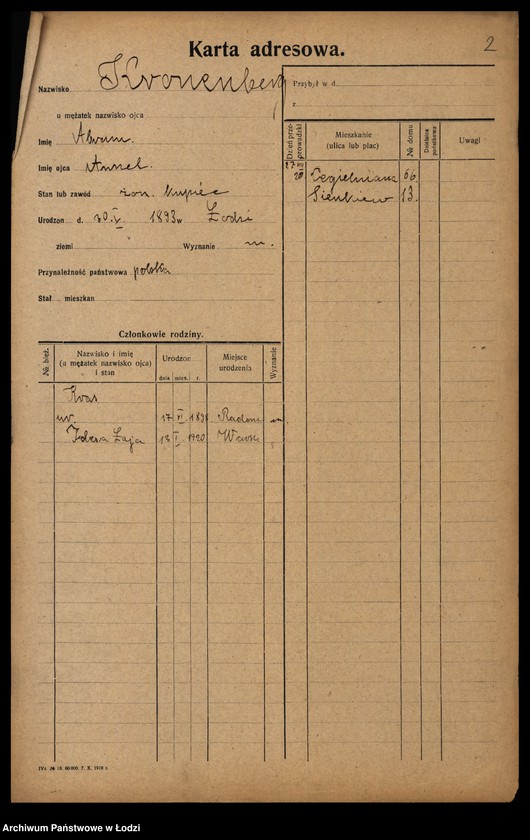 Karta adresowa.
2
Nazwisko Kronenberg
u mężatek nazwisko ojca
Imię Abram.
Imię ojca Anszel.
Stan lub zawód żon. kupiec
Urodzon d. 20 V 1893 w Łodzi
ziemi Wyznanie m.
Przynależność państwowa polska
Stał mieszkan
Przybył w d.
r.
Dzień przeprowadzki Mieszkanie (ulica lub plac) № domu Dzielnica państwowa Uwagi
Cegielniana 66
20 Sienkiew 13.
Członkowie rodziny.
№ bież. Nazwisko i imię (u mężatek nazwisko ojca) i stan Urodzon Miejsce urodzenia Wyznanie
dnia mies. r.
17 VI Radom m.
Łaja 18 I 1920
IV4 № 18. 60000. 7. X. 1919 r.
Archiwum Państwowe w Łodzi